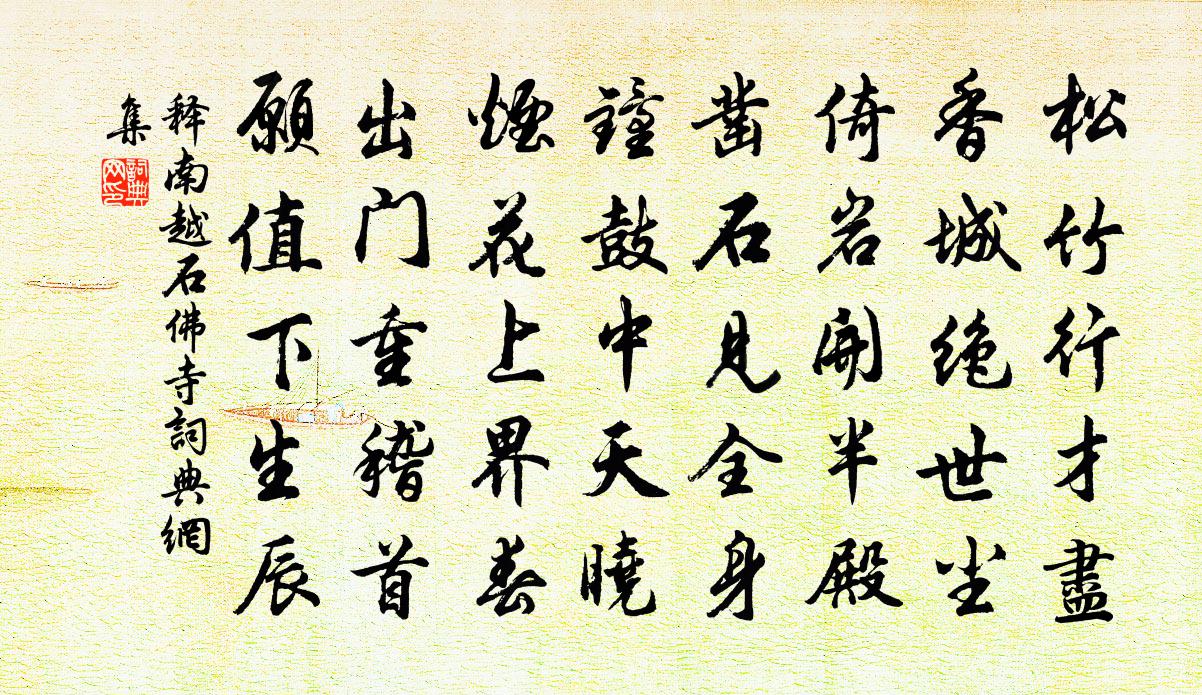 松竹行才盡
香城绝世尘
倚岩開半殿
凿石見全身
鐘鼓中天曉
煙花上界春
出门重稽首
願值下生辰
释南越石佛寺詞典網
集
詞典
网印